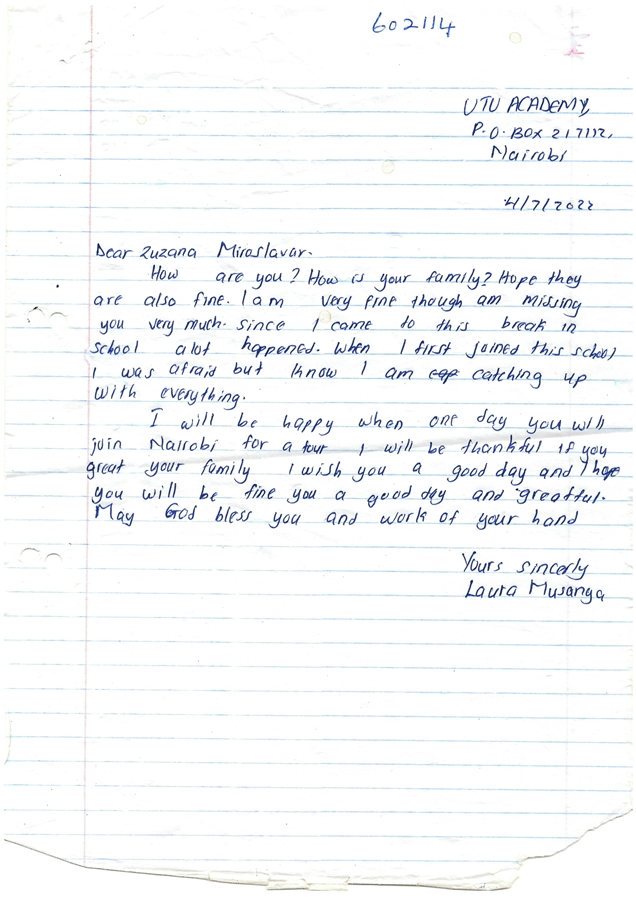 602114
UTU ACADEMY,
P.O. BOX 217112,
Nairobi
4/7/2022
Dear Zuzana Miroslavar.
How are you? How is your family? Hope they
are also fine. I am very fine though am missing
you very much. since I came to this break in
school alot happened. when I first joined this school
I was afraid but know I am cap catching up
with everything.
I will be happy when one day you will
join Nairobi for a tour I will be thankful if you
great your family I wish you a good day and I hope
you will be fine you a good day and greatful.
May God bless you and work of your hand
Yours sincerly
Laura Musanga